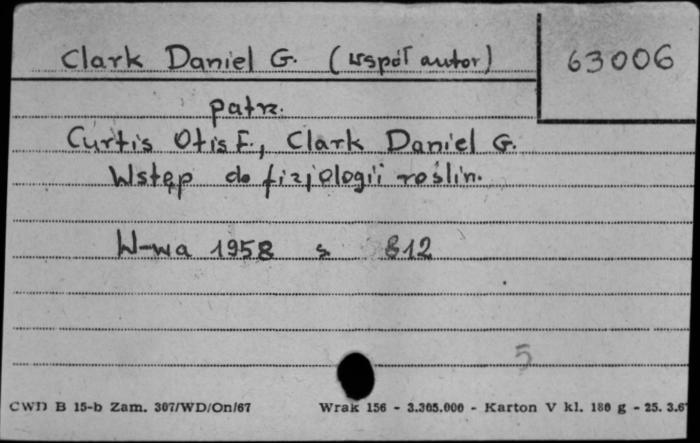 Clark Daniel G. (współautor) 63006
patrz.
Curtis Otis F., Clark Daniel G.
Wstęp do fizjologii roślin.
W-wa 1958 s 812
5
CWD B 15-b Zam. 307/WD/On/67 Wrak 156 - 3.305.000 - Karton V kl. 180 g - 25. 3.67